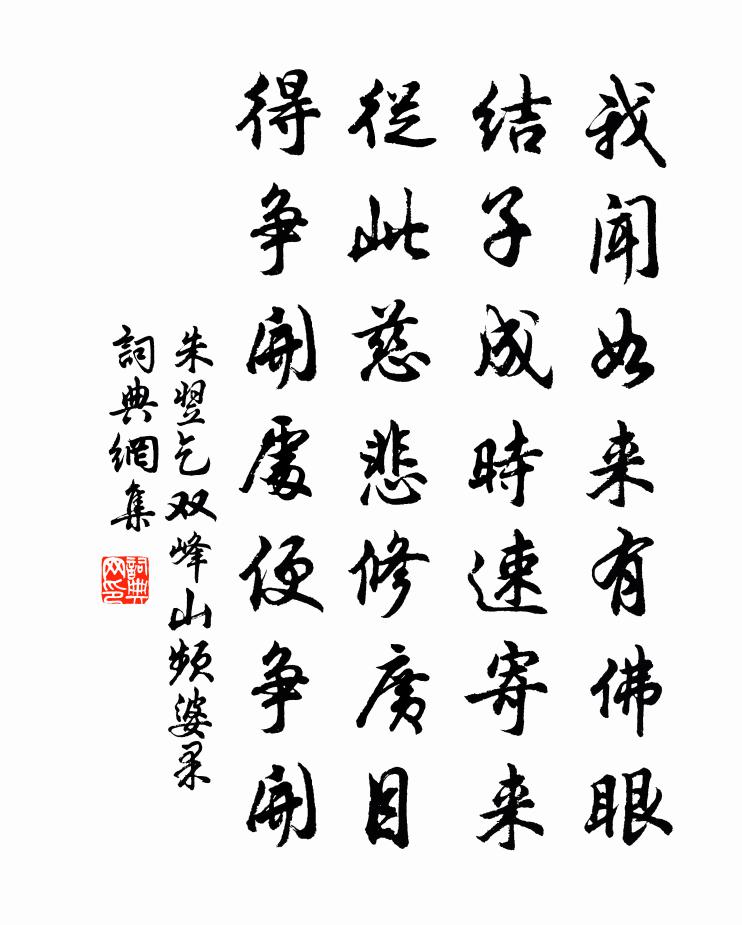 我聞如来有佛眼
結子成時速寄来
從此慈悲修廣目
得争開處便争開
朱翌乞双峰山频婆果
詞典網集
詞典网印